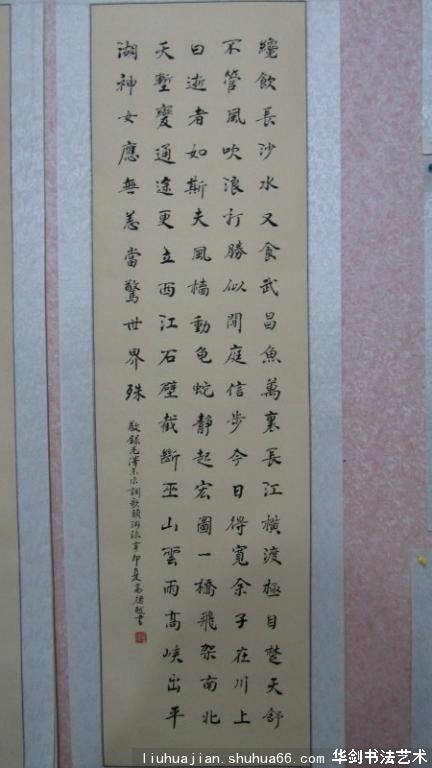 纔飲長沙水又食武昌魚萬裏長江橫渡極目楚天舒
不管風吹浪打勝似閒庭信步今日得寬余子在川上
曰逝者如斯夫風檣動龜蛇靜起宏圖一橋飛架南北
天塹變通途更立西江石壁截斷巫山雲雨高峽出平
湖神女應無恙當驚世界殊
敬錄毛澤東水調歌頭游泳辛卯夏高書
liuhuajian.shuhua66.com 华剑书法艺术